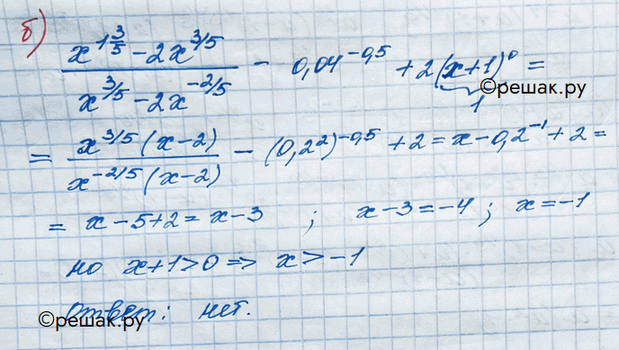 б)
(x^{1 3/5} - 2x^{3/5}) / (x^{3/5} - 2x^{-2/5}) - 0,04^{-0,5} + 2(x+1)^0 =
1
©решак.ру
= x^{3/5}(x-2) / x^{-2/5}(x-2) - (0,2^2)^{-0,5} + 2 = x - 0,2^{-1} + 2 =
= x - 5 + 2 = x - 3 ; x - 3 = -4 ; x = -1
но x + 1 > 0 => x > -1
ответ: нет.
©решак.ру